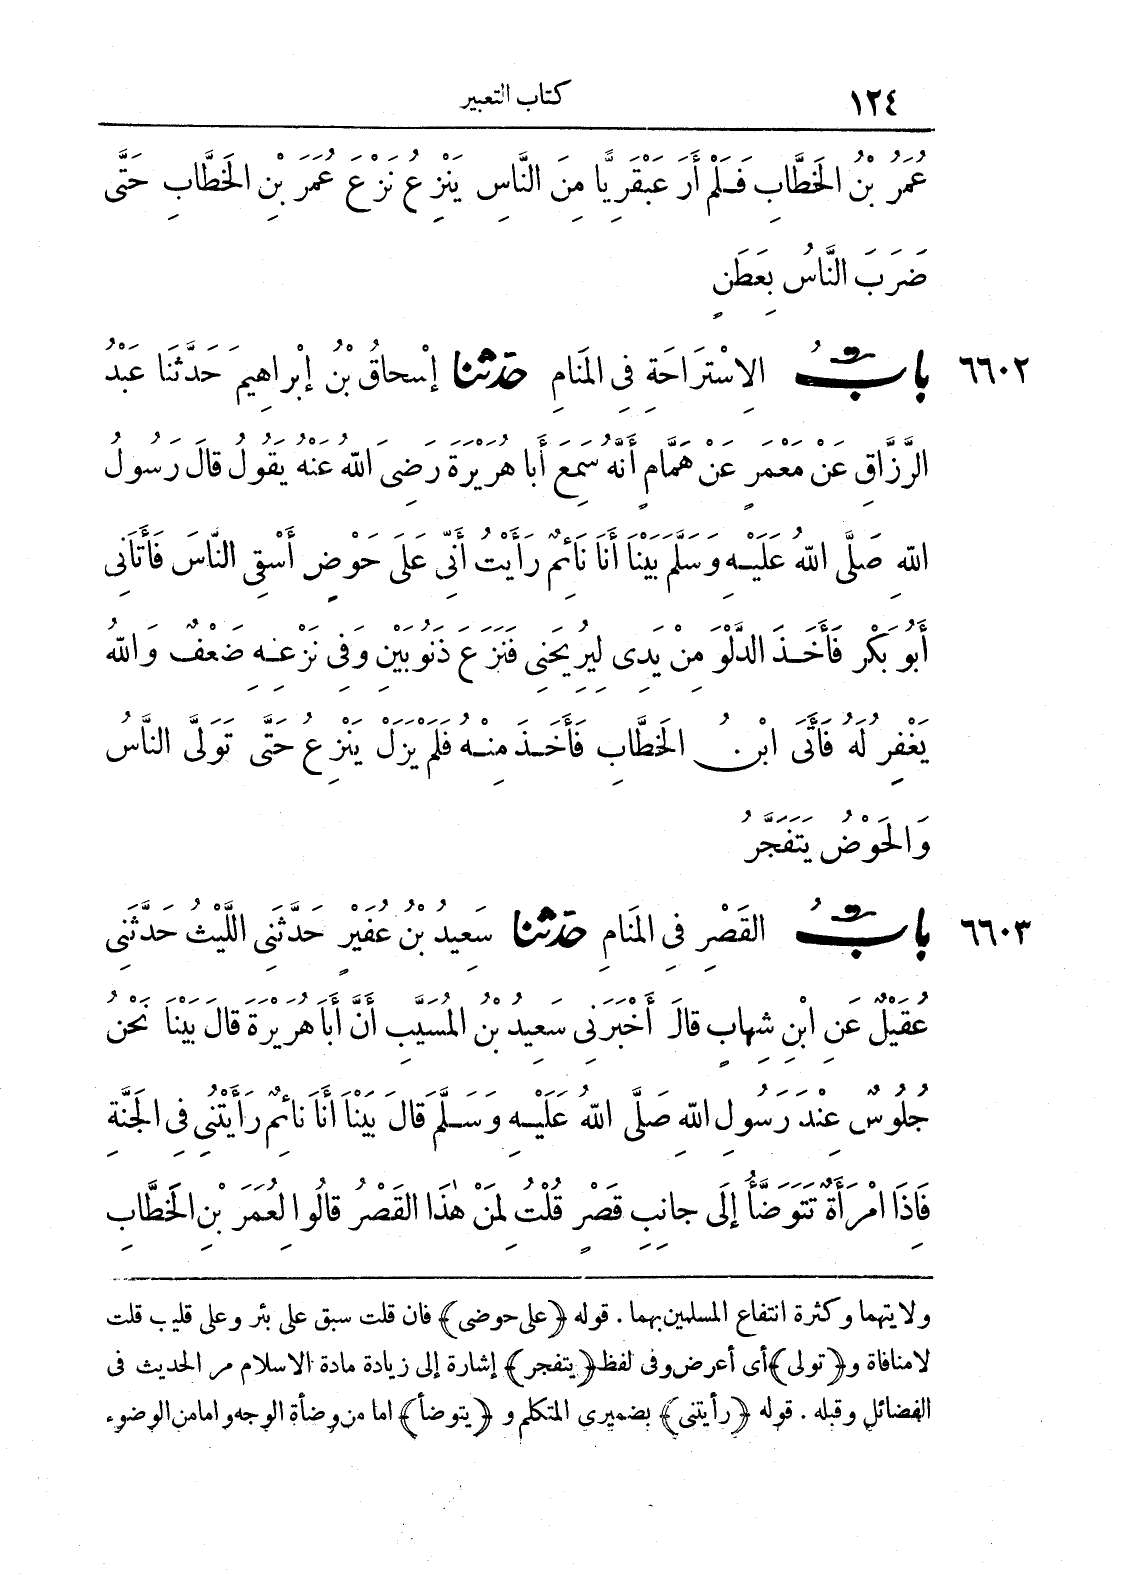 ١٢٤ كتاب التعبير
عُمَرُ بْنُ الخَطَّابِ فَلَمْ أَرَ عَبْقَرِيًّا مِنَ النَّاسِ يَنْزِعُ نَزْعَ عُمَرَ بْنِ الخَطَّابِ حَتَّى
ضَرَبَ النَّاسُ بِعَطَنٍ
٦٦٠٢ بابُ الِاسْتِرَاحَةِ فِى المَنَامِ حدثنا إِسْحاقُ بْنُ إِبْراهِيمَ حَدَّثَنَا عَبْدُ
الرَّزَّاقِ عَنْ مَعْمَرٍ عَنْ هَمَّامٍ أَنَّهُ سَمِعَ أَبا هُرَيْرَةَ رَضِىَ اللهُ عَنْهُ يَقُولُ قالَ رَسُولُ
اللهِ صَلَّى اللهُ عَلَيْهِ وَسَلَّمَ بَيْنَا أَنَا نَائِمٌ رَأَيْتُ أَنِّى عَلَى حَوْضٍ أَسْقِى النَّاسَ فَأَتَانِى
أَبُو بَكْرٍ فَأَخَذَ الدَّلْوَ مِنْ يَدِى لِيُرِيحَنِى فَنَزَعَ ذَنُوبَيْنِ وَفِى نَزْعِهِ ضَعْفٌ وَاللهُ
يَغْفِرُ لَهُ فَأَتَى ابْنُ الخَطَّابِ فَأَخَذَ مِنْهُ فَلَمْ يَزَلْ يَنْزِعُ حَتَّى تَوَلَّى النَّاسُ
وَالحَوْضُ يَتَفَجَّرُ
٦٦٠٣ بابُ القَصْرِ فِى المَنَامِ حدثنا سَعِيدُ بْنُ عُفَيْرٍ حَدَّثَنِى اللَّيْثُ حَدَّثَنِى
عُقَيْلٌ عَنِ ابْنِ شِهابٍ قالَ أَخْبَرَنِى سَعِيدُ بْنُ المُسَيَّبِ أَنَّ أَبَا هُرَيْرَةَ قالَ بَيْنَا نَحْنُ
جُلُوسٌ عِنْدَ رَسُولِ اللهِ صَلَّى اللهُ عَلَيْهِ وَسَلَّمَ قالَ بَيْنَا أَنَا نائِمٌ رَأَيْتُنِى فِى الجَنَّةِ
فَاذَا امْرَأَةٌ تَتَوَضَّأُ إِلَى جانِبِ قَصْرٍ قُلْتُ لِمَنْ هٰذَا القَصْرُ قالُوا لِعُمَرَ بْنِ الخَطَّابِ
ولايتهما وكثرة انتفاع المسلمين بهما . قوله ﴿على حوضى﴾ فان قلت سبق على بئر وعلى قليب قلت
لا منافاة و﴿تولى﴾ أى أعرض وفى لفظ ﴿يتفجر﴾ إشارة إلى زيادة مادة الاسلام مر الحديث فى
الفضائل وقبله . قوله ﴿رأيتنى﴾ بضميرى المتكلم و ﴿يتوضأ﴾ اما من وضأة الوجه واما من الوضوء